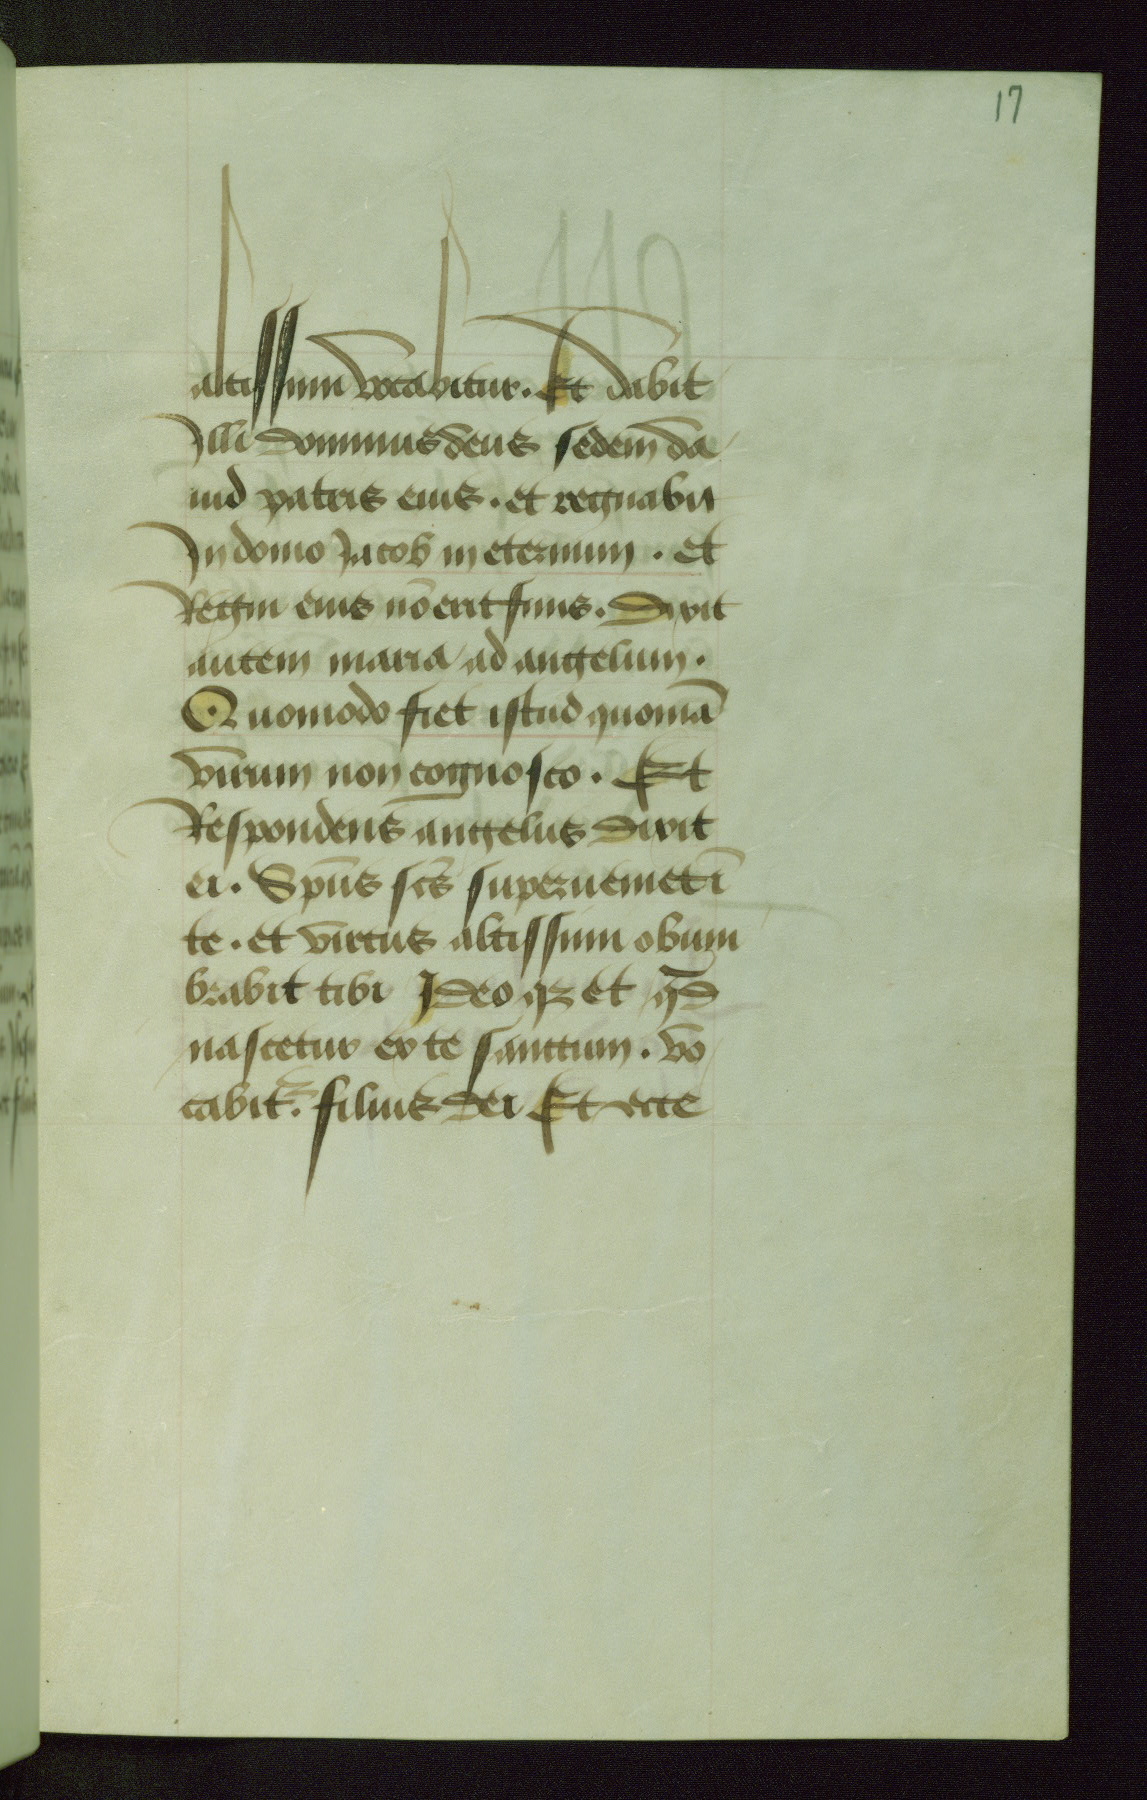 17
altissimi vocabitur. Et dabit
Illi dominus deus sedem da
uid patris eius. et regnabit
In domo Jacob in eternum. et
Regni eius nō erit finis. Dixit
autem maria ad angelum.
Quomodo fiet istud quoniā
virum non cognosco. Et
Respondens angelus dixit
ei. Spūs scs̄ superueniet ī
te. et virtus altissimi obum
brabit tibi Ideoqz et qd̄
nascetur ex te sanctum. vo
cabitʳ. filius dei Et ecce